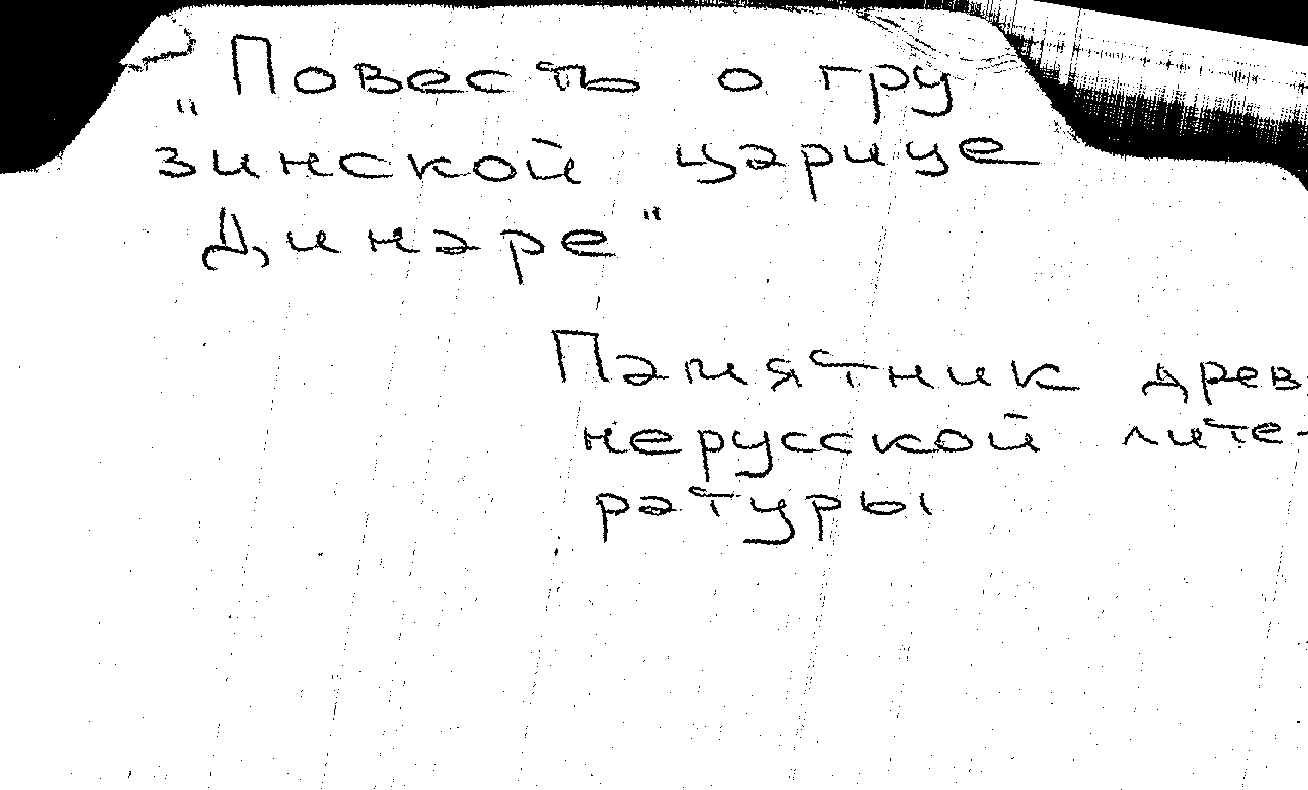 „Повесть о гру
зинской царице
Динаре"
Памятник древ
нерусской лите-
ратуры